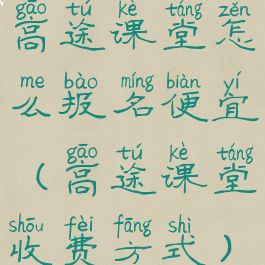 gāo tú kè táng zěn
高途课堂怎
me bào míng biàn yí
么报名便宜
gāo tú kè táng
(高途课堂
shōu fèi fāng shì
收费方式)